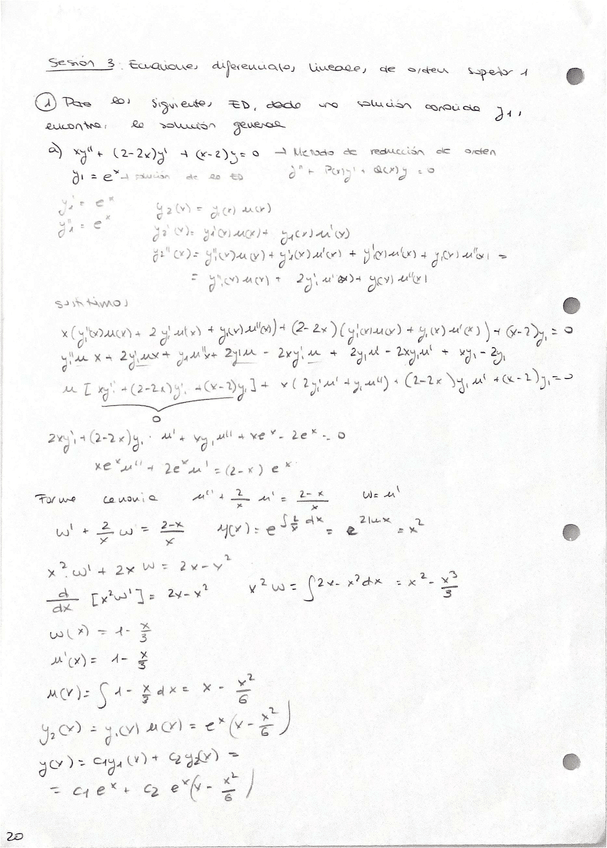 Sesión 3: Ecuaciones diferenciales lineales de orden superior 1
① Para las siguientes ED, dada una solución conocida y₁,
encontrar la solución general
a) xy'' + (2-2x)y' + (x-2)y = 0 → Método de reducción de orden
y₁ = eˣ → solución de la ED y'' + P(x)y' + Q(x)y = 0
y₁' = eˣ y₂(x) = y₁(x) u(x)
y₁'' = eˣ y₂'(x) = y₁'(x)u(x) + y₁(x)u'(x)
y₂''(x) = y₁''(x)u(x) + y₁'(x)u'(x) + y₁'(x)u'(x) + y₁(x)u''(x) =
= y₁''(x)u(x) + 2y₁'u'(x) + y₁(x)u''(x)
sustituimos
x(y₁''(x)u(x) + 2y₁'u'(x) + y₁(x)u''(x)) + (2-2x)(y₁'(x)u(x) + y₁(x)u'(x)) + (x-2)y₁ = 0
y₁''u x + 2y₁'ux + y₁u''x + 2y₁'u - 2xy₁'u + 2y₁u' - 2xy₁u' + xy₁ - 2y₁
u[xy₁'' + (2-2x)y₁' + (x-2)y₁] + x(2y₁'u' + y₁u'') + (2-2x)y₁u' + (x-2)y₁ = 0
0
2xy₁' + (2-2x)y₁ · u' + xy₁u'' + xeˣ - 2eˣ = 0
xeˣu'' + 2eˣu' = (2-x)eˣ
Forma canonica u'' + 2/x u' = 2-x/x w = u'
w' + 2/x w = 2-x/x μ(x) = e^∫2/x dx = e^2lnx = x²
x² · w' + 2x w = 2x - x²
d/dx [x²w'] = 2x - x² x²w = ∫2x - x²dx = x² - x³/3
w(x) = 1 - x/3
u'(x) = 1 - x/3
u(x) = ∫1 - x/3 dx = x - x²/6
y₂(x) = y₁(x) u(x) = eˣ(x - x²/6)
y(x) = c₁y₁(x) + c₂y₂(x) =
= c₁eˣ + c₂ eˣ(x - x²/6)
20